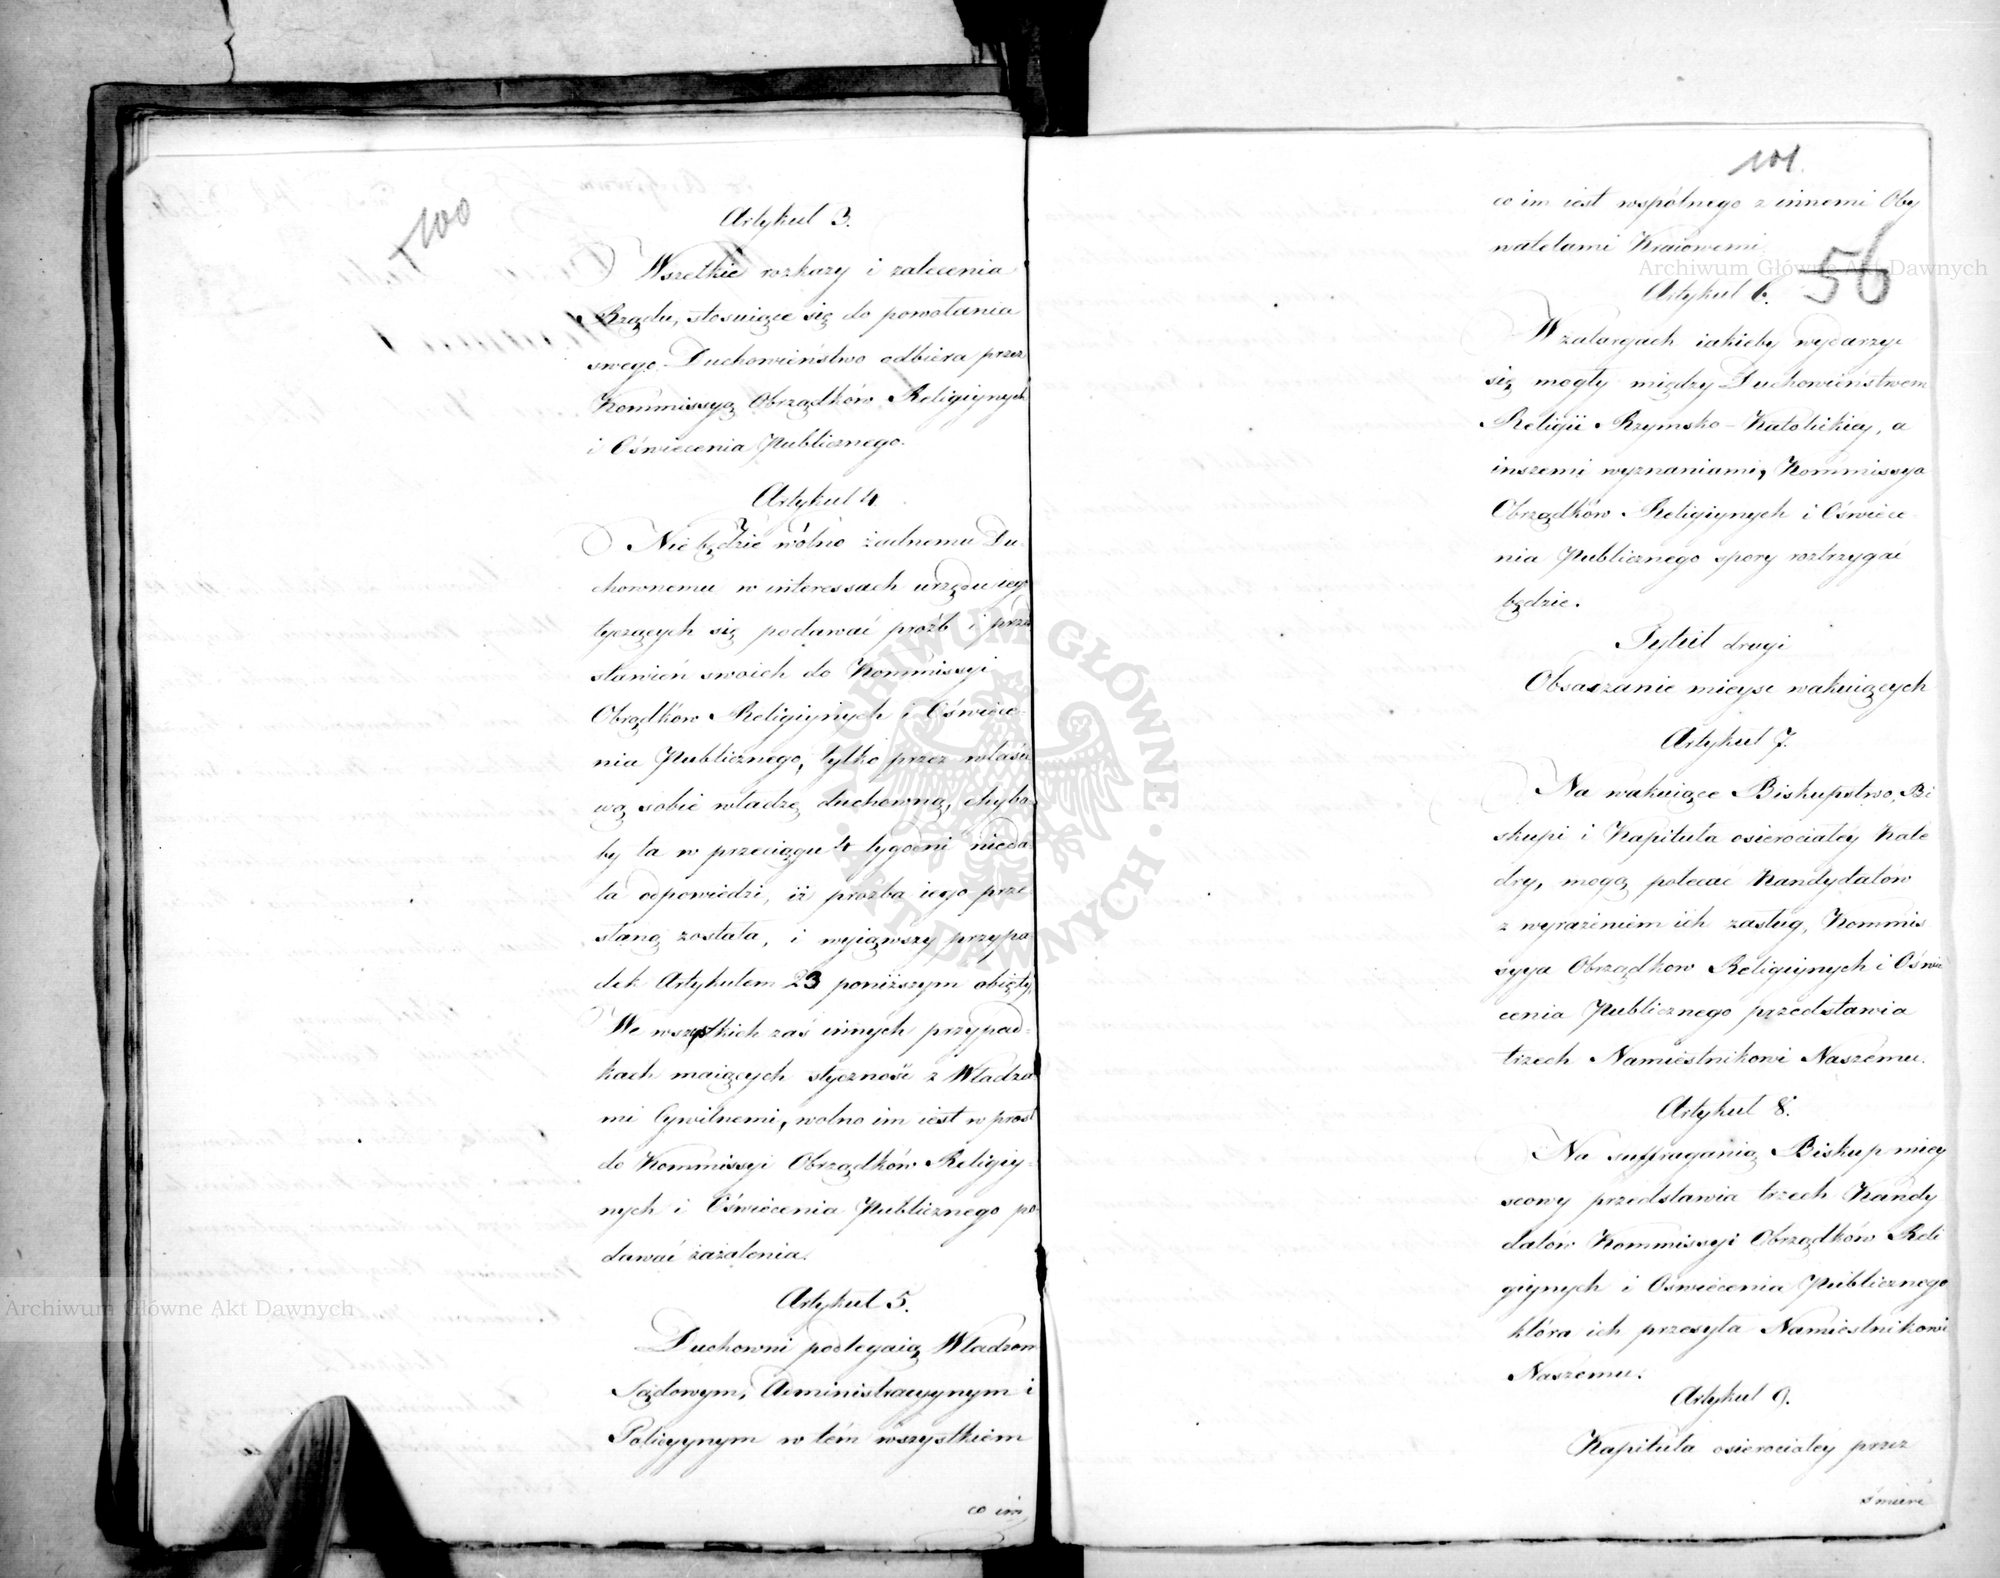 100
Artykuł 3.
Wszelkie rozkazy i zalecenia
Rządu, stosuiące się do powołania
swego Duchowieństwo odbiera przez
Kommissyą Obrządków Religiynych
i Oświecenia Publicznego.
Artykuł 4.
Nie będzie wolno żadnemu Du-
chownemu w interessach urzędu iego
tyczących się podawać proźb i przed
stawień swoich do Kommissyi
Obrądków Religiynych i Oświece-
nia Publicznego, tylko przez właści
wą sobie władzę duchowną, chyba-
by ta w przeciągu 4 tygodni nieda-
ła odpowiedzi, iż prożba iego prze
słaną została, i wyiąwszy przypa-
dek Artykułem 23 poniższym obięty,
We wszystkich zaś innych przypad-
kach maiących styczność z Władza
mi Cywilnemi, wolno im iest w prost
do Kommissyi Obrządków Religiy-
nych i Oświecenia Publicznego po-
dawać zażalenia.
Artykuł 5.
Duchowni podlegaią Władzom
Sądowym, Administracyynym i
Policyynym w tém wszystkiem
co im
101.
co im iest wspólnego z innemi Oby
watelami Kraiowemi.
56
Artykuł 6.
W zatargach iakieby wydarzyć
się mogły między Duchowieństwem
Religii Rzymsko-Katolickiey, a
inszemi wyznaniami, Kommissya
Obrządków Religiynych i Oświece-
nia Publicznego spory roztrzygać
będzie.
Tytuł drugi
Obsadzanie mieysc wakuiących
Artykuł 7.
Na wakuiące Biskupstwo, Bi
skupi i Kapituła osierociałey Kate
dry, mogą polecać Kandydatów
z wyrażeniem ich zasług, Kommis
syya Obrządkow Religiynych i Oświe
cenia Publicznego przedstawia
trzech Namiestnikowi Naszemu.
Artykuł 8.
Na suffraganią Biskup miey
scowy przedstawia trzech Kandy
datów Kommissyi Obrządków Reli
giynych i Oświecenia Publicznego
która ich przesyła Namiestnikowi
Naszemu.
Artykuł 9.
Kapituła osierociałey przez
śmierć
Archiwum Główne Akt Dawnych
Archiwum Główne Akt Dawnych
ARCHIWUM GŁÓWNE AKT DAWNYCH